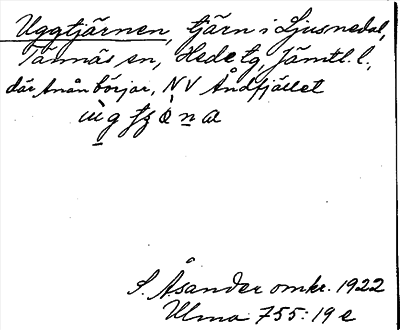 Uggtjärnen, tjärn i Ljusnedal,
Tännäs sn, Hede tg, Jämtl. l.,
där Anån börjar, NV Åndfjället
S. Åsander omkr. 1922
Ulma 755:19 e